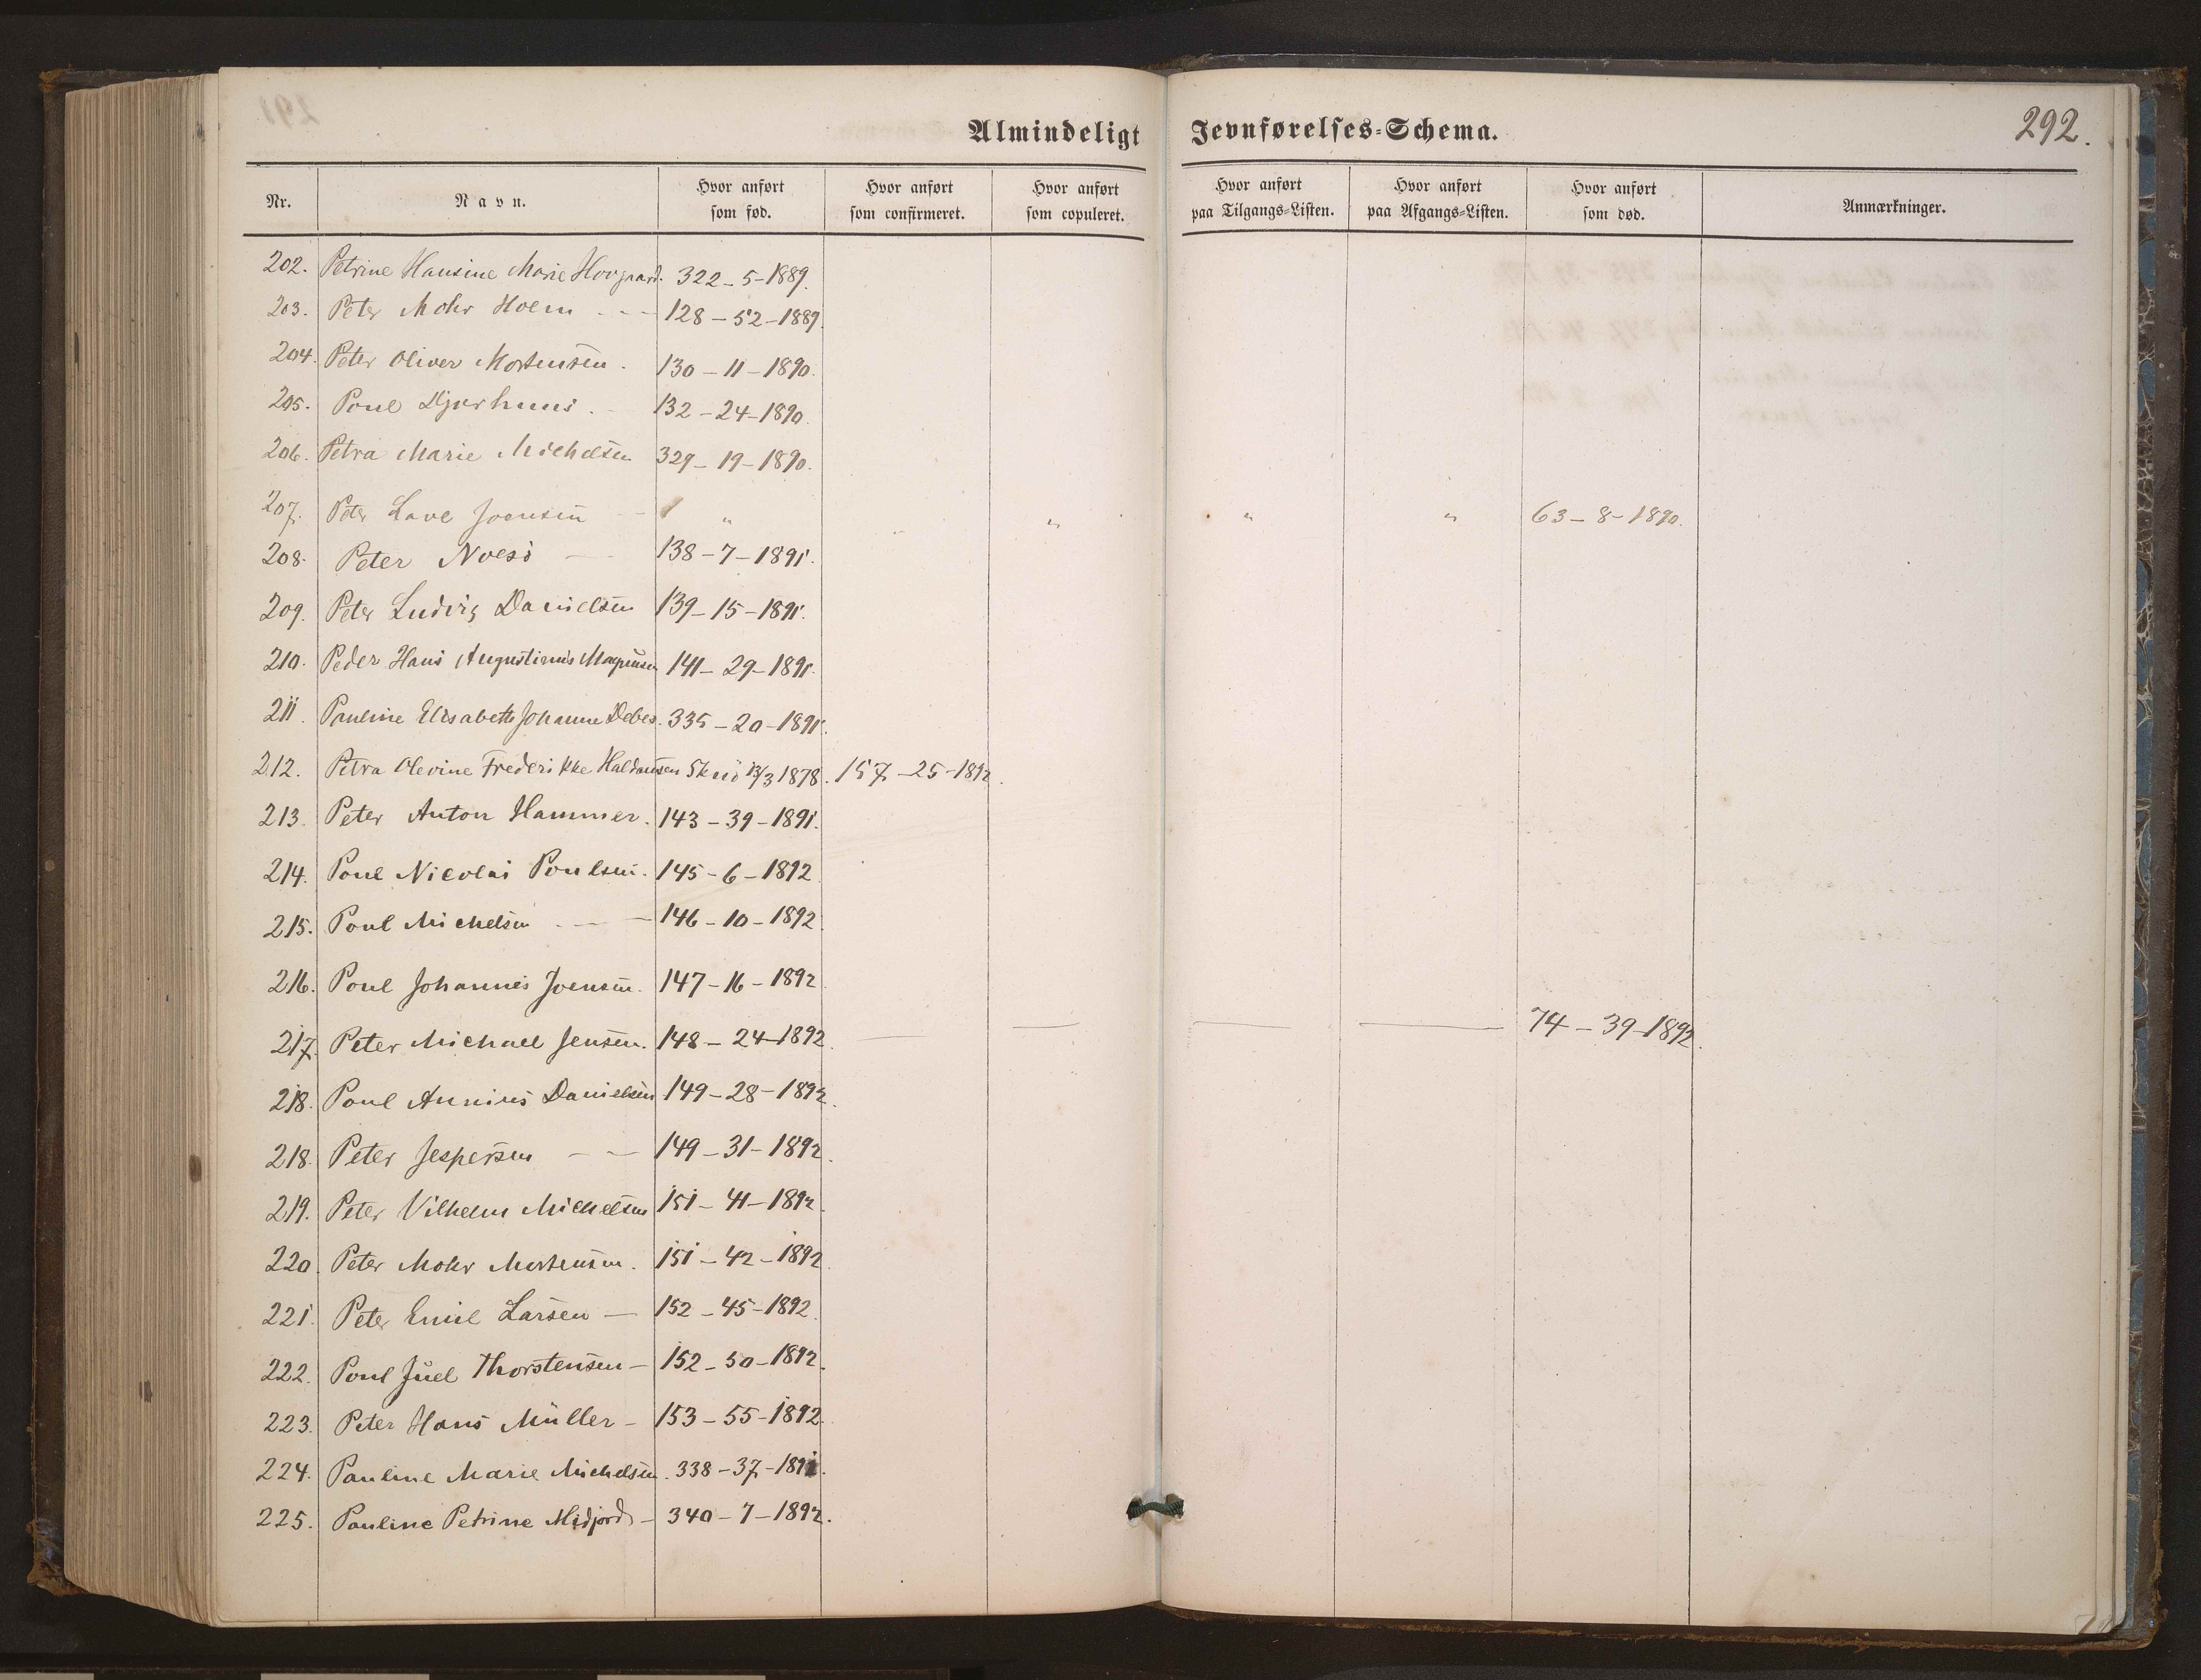 Almindeligt Jevnførelses-Schema. 292.
Nr. Navn. Hvor anført som fød. Hvor anført som confirmeret. Hvor anført som copuleret. Hvor anført paa Tilgangs-Listen. Hvor anført paa Afgangs-Listen. Hvor anført som død. Anmærkninger.
202. Petrine Hansine Marie Hovgaard. 322-5-1889.
203. Peter Mohr Holm - - - 128-52-1889.
204. Peter Oliver Mortensen. 130-11-1890.
205. Poul Djurhuus. - 132-24-1890.
206. Petra Marie Michelsen 329-19-1890.
207. Peter Lave Joensen - " " " " 63-8-1890.
208. Peter Noesö — 138-7-1891.
209. Peter Ludvig Danielsen 139-15-1891.
210. Peder Hans Augustinus Magnusen 141-29-1891.
211. Pauline Elisabeth Johanne Debes. 335-20-1891.
212. Petra Olevine Frederikke Haldansen 13/3 1878. 157-25-1892.
213. Peter Anton Hammer. 143-39-1891.
214. Poul Nicolai Poulsen. 145-6-1892
215. Poul Michelsen - — — 146-10-1892.
216. Poul Johannes Joensen. 147-16-1892
217. Peter Michael Jensen. 148-24-1892. — — — — 74-39-1892.
218. Poul Danielsen 149-28-1892.
218. Peter Jespersen — — 149-31-1892.
219. Peter Vilhelm Michelsen 151-41-1892.
220. Peter Mohr Mortensen. 151-42-1892.
221. Peter Emil Larsen — 152-45-1892.
222. Poul Juel Thorstensen — 152-50-1892.
223. Peter Hans Müller - 153-55-1892.
224. Pauline Marie Michelsen. 338-37-1891.
225. Pauline Petrine Midjord - 340-7-1892.